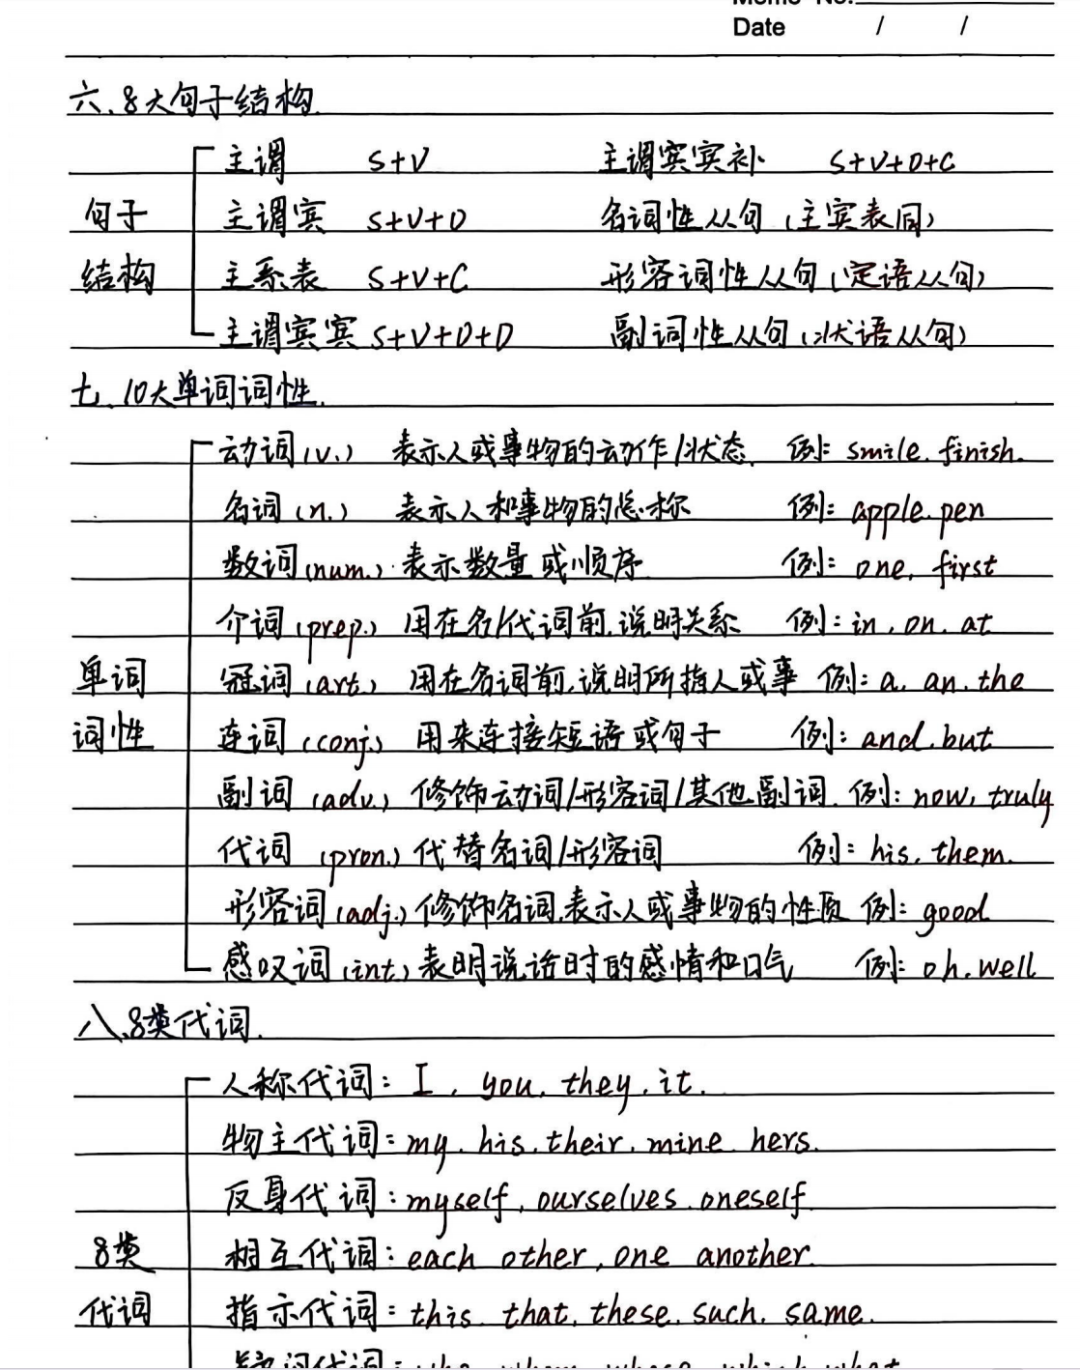 Memo No.
Date / /
六、8大句子结构.
主谓 S+V 主谓宾宾补 S+V+O+C
句子 主谓宾 S+V+O 名词性从句(主宾表同)
结构 主系表 S+V+C 形容词性从句(定语从句)
主谓宾宾 S+V+O+O 副词性从句(状语从句)
七、10大单词词性.
动词(v.) 表示人或事物的动作/状态. 例: smile. finish.
名词(n.) 表示人和事物的总称 例: apple. pen
数词(num.) 表示数量或顺序 例: one, first
介词(prep.) 用在名/代词前,说明关系 例: in, on, at
单词 冠词(art.) 用在名词前,说明所指人或事 例: a, an, the
词性 连词(conj.) 用来连接短语或句子 例: and. but
副词(adv.) 修饰动词/形容词/其他副词. 例: now, truly
代词(pron.) 代替名词/形容词 例: his, them.
形容词(adj.) 修饰名词,表示人或事物的性质 例: good
感叹词(int.) 表明说话时的感情和口气 例: oh. well
八、8类代词.
人称代词: I, you, they, it.
物主代词: my. his. their. mine. hers.
反身代词: myself, ourselves. oneself
8类 相互代词: each other, one another.
代词 指示代词: this. that. these. such. same.